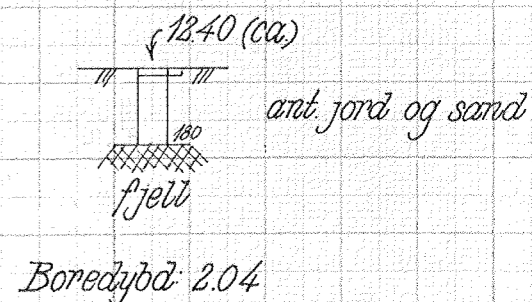 12.40 (ca.)
ant. jord og sand
180
fjell
Boredybd: 2.04